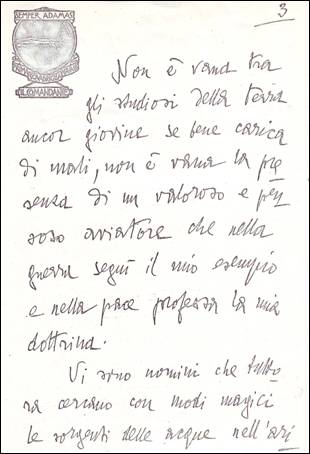 SEMPER ADAMAS
IL COMANDANTE
3
Non è vana tra
gli studiosi della terra
ancor giovine se bene carica
di mali, non è vana la pre
senza di un valoroso e pen
soso aviatore che nella
guerra seguì il mio esempio
e nella pace professa la mia
dottrina.
Vi sono uomini che tutto
ra cercano con modi magici
le sorgenti delle acque nell'ari